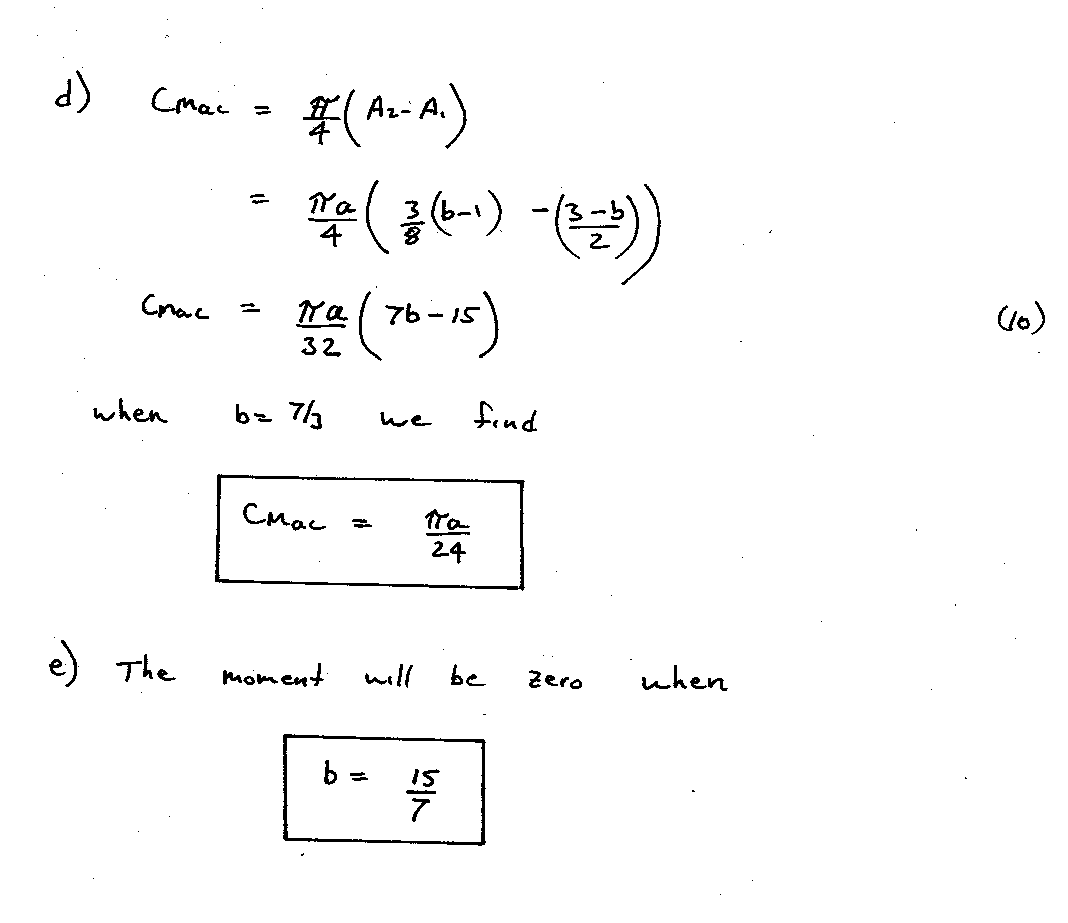 d) CMac = π/4 (A₂ - A₁)
= πa/4 ( 3/8 (b-1) - ( (3-b)/2 ) )
CMac = πa/32 ( 7b - 15 ) (10)
when b = 7/3 we find
CMac = πa/24
e) The moment will be zero when
b = 15/7